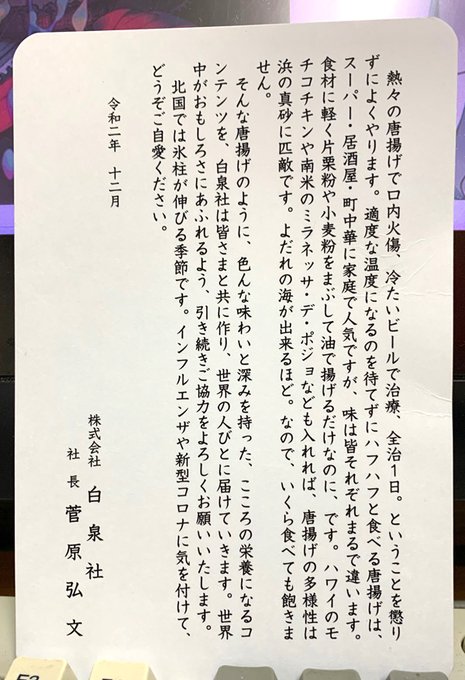 熱々の唐揚げで口内火傷、冷たいビールで治療、全治1日。ということを懲り
ずによくやります。適度な温度になるのを待てずにハフハフと食べる唐揚げは、
スーパー・居酒屋・町中華に家庭で人気ですが、味は皆それぞれまるで違います。
食材に軽く片栗粉や小麦粉をまぶして油で揚げるだけなのに、です。ハワイのモ
チコチキンや南米のミラネッサ・デ・ポジョなども入れれば、唐揚げの多様性は
浜の真砂に匹敵です。よだれの海が出来るほど。なので、いくら食べても飽きま
せん。
そんな唐揚げのように、色んな味わいと深みを持った、こころの栄養になるコ
ンテンツを、白泉社は皆さまと共に作り、世界の人びとに届けていきます。世界
中がおもしろさにあふれるよう、引き続きご協力をよろしくお願いいたします。
北国では氷柱が伸びる季節です。インフルエンザや新型コロナに気を付けて、
どうぞご自愛ください。
令和二年 十二月
株式会社 白泉社
社長 菅原弘文